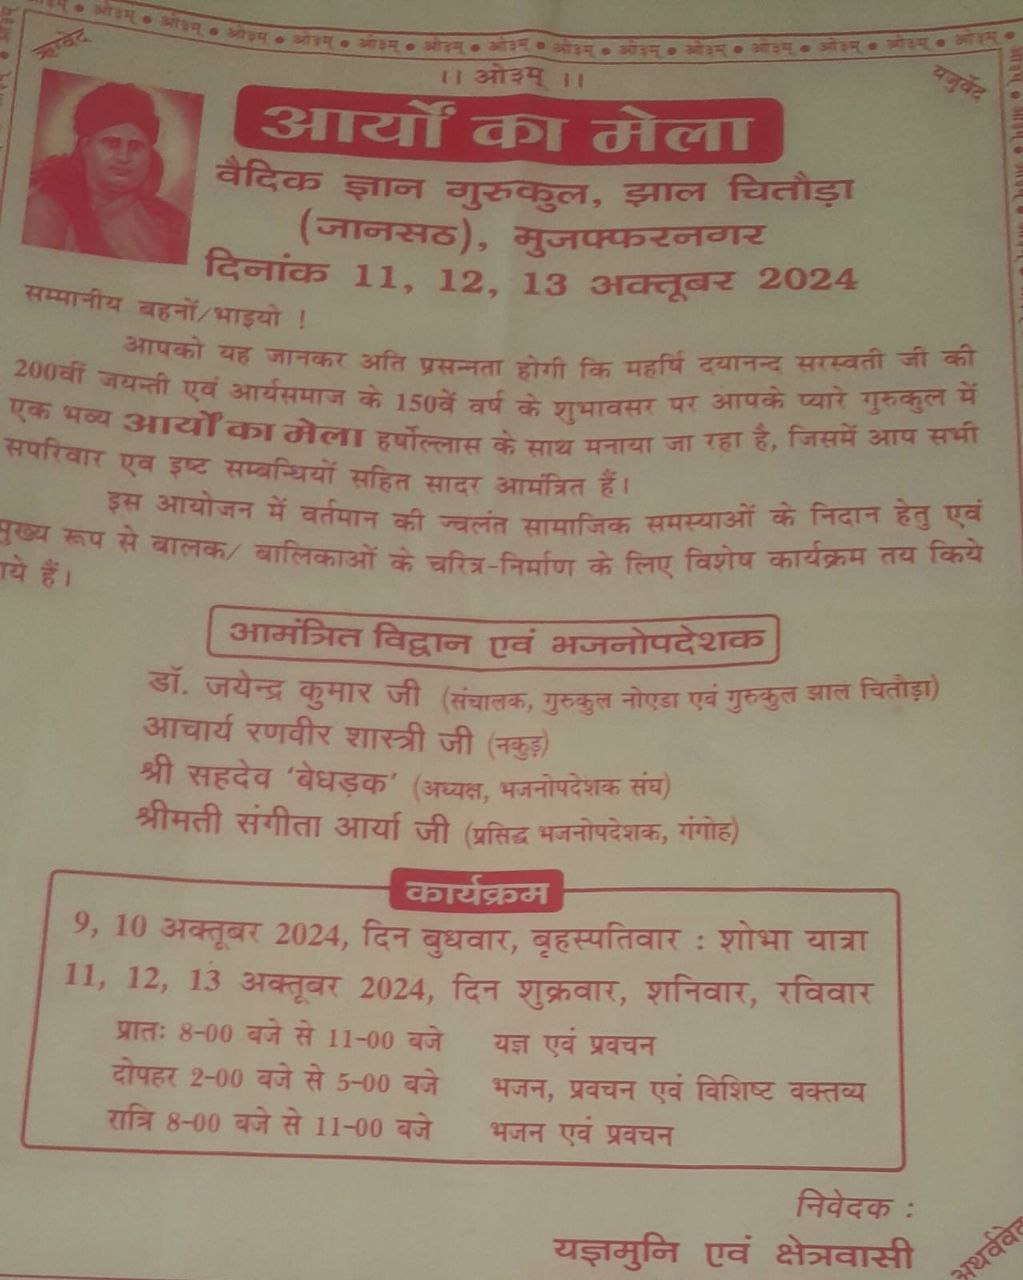 ओ३म् ● ओ३म् ● ओ३म् ● ओ३म् ● ओ३म् ● ओ३म् ● ओ३म् ● ओ३म् ● ओ३म् ● ओ३म् ● ओ३म् ● ओ३म् ● ओ३म् ● ओ३म् ● ओ३म् ●
ऋग्वेद
यजुर्वेद
।। ओ३म् ।।
आर्यों का मेला
वैदिक ज्ञान गुरुकुल, झाल चितौड़ा
(जानसठ), मुजफ्फरनगर
दिनांक 11, 12, 13 अक्तूबर 2024
सम्मानीय बहनों/भाइयो !
आपको यह जानकर अति प्रसन्नता होगी कि महर्षि दयानन्द सरस्वती जी की
200वीं जयन्ती एवं आर्यसमाज के 150वें वर्ष के शुभावसर पर आपके प्यारे गुरुकुल में
एक भव्य आर्यों का मेला हर्षोल्लास के साथ मनाया जा रहा है, जिसमें आप सभी
सपरिवार एव इष्ट सम्बन्धियों सहित सादर आमंत्रित हैं।
इस आयोजन में वर्तमान की ज्वलंत सामाजिक समस्याओं के निदान हेतु एवं
मुख्य रूप से बालक/ बालिकाओं के चरित्र-निर्माण के लिए विशेष कार्यक्रम तय किये
गये हैं।
आमंत्रित विद्वान एवं भजनोपदेशक
डॉ. जयेन्द्र कुमार जी (संचालक, गुरुकुल नोएडा एवं गुरुकुल झाल चितौड़ा)
आचार्य रणवीर शास्त्री जी (नकुड़)
श्री सहदेव 'बेधड़क' (अध्यक्ष, भजनोपदेशक संघ)
श्रीमती संगीता आर्या जी (प्रसिद्ध भजनोपदेशक, गंगोह)
कार्यक्रम
9, 10 अक्तूबर 2024, दिन बुधवार, बृहस्पतिवार : शोभा यात्रा
11, 12, 13 अक्तूबर 2024, दिन शुक्रवार, शनिवार, रविवार
प्रातः 8-00 बजे से 11-00 बजे यज्ञ एवं प्रवचन
दोपहर 2-00 बजे से 5-00 बजे भजन, प्रवचन एवं विशिष्ट वक्तव्य
रात्रि 8-00 बजे से 11-00 बजे भजन एवं प्रवचन
निवेदक :
यज्ञमुनि एवं क्षेत्रवासी
अथर्ववेद